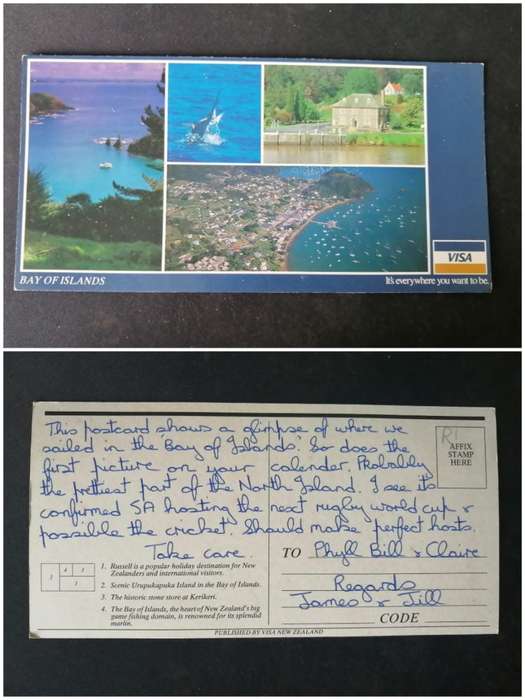 BAY OF ISLANDS
VISA
It's everywhere you want to be.
This postcard shows a glimpse of where we
sailed in the 'Bay of Islands'. So does the
first picture on your calender. Probably
the prettiest part of the North Island. I see its
confirmed SA hosting the next rugby world cup &
possible the cricket. Should make perfect hosts.
Take care.
R1
AFFIX
STAMP
HERE
TO Phyll Bill & Claire
Regards
James & Jill
CODE
4 1
3 1
1. Russell is a popular holiday destination for New
Zealanders and international visitors.
2. Scenic Urupukapuka Island in the Bay of Islands.
3. The historic stone store at Kerikeri.
4. The Bay of Islands, the heart of New Zealand's big
game fishing domain, is renowned for its splendid
marlin.
PUBLISHED BY VISA NEW ZEALAND